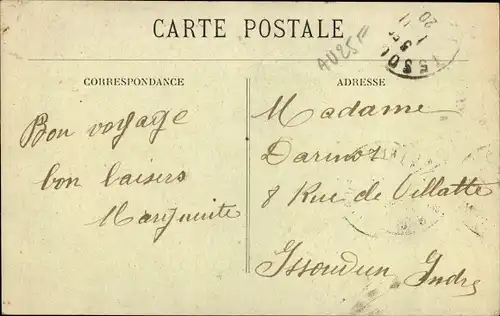 CARTE POSTALE
AU25F
CORRESPONDANCE
Bon voyage
bon baisers
Marguerite
ADRESSE
Madame
8 Rue de Villatte
Issoudun Indre